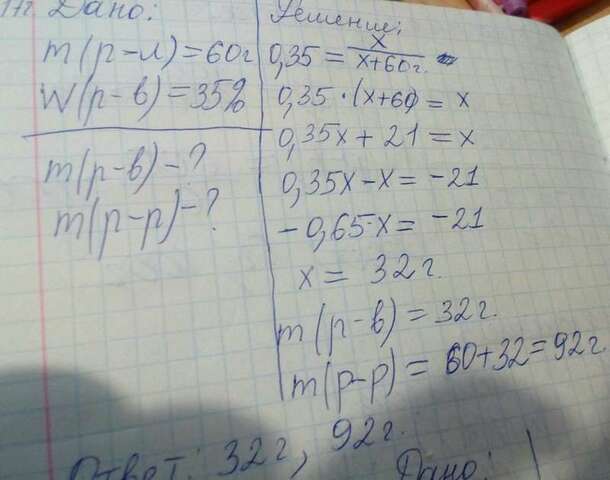 Дано:
m(р-л)=60г
W(р-в)=35%
m(р-в)-?
m(р-р)-?
Решение:
0,35 = x/x+60г.
0,35·(x+60) = x
0,35x + 21 = x
0,35x-x = -21
-0,65·x = -21
x = 32г.
m(р-в) = 32г.
m(р-р) = 60+32=92г.
Ответ: 32г, 92г.
Дано: